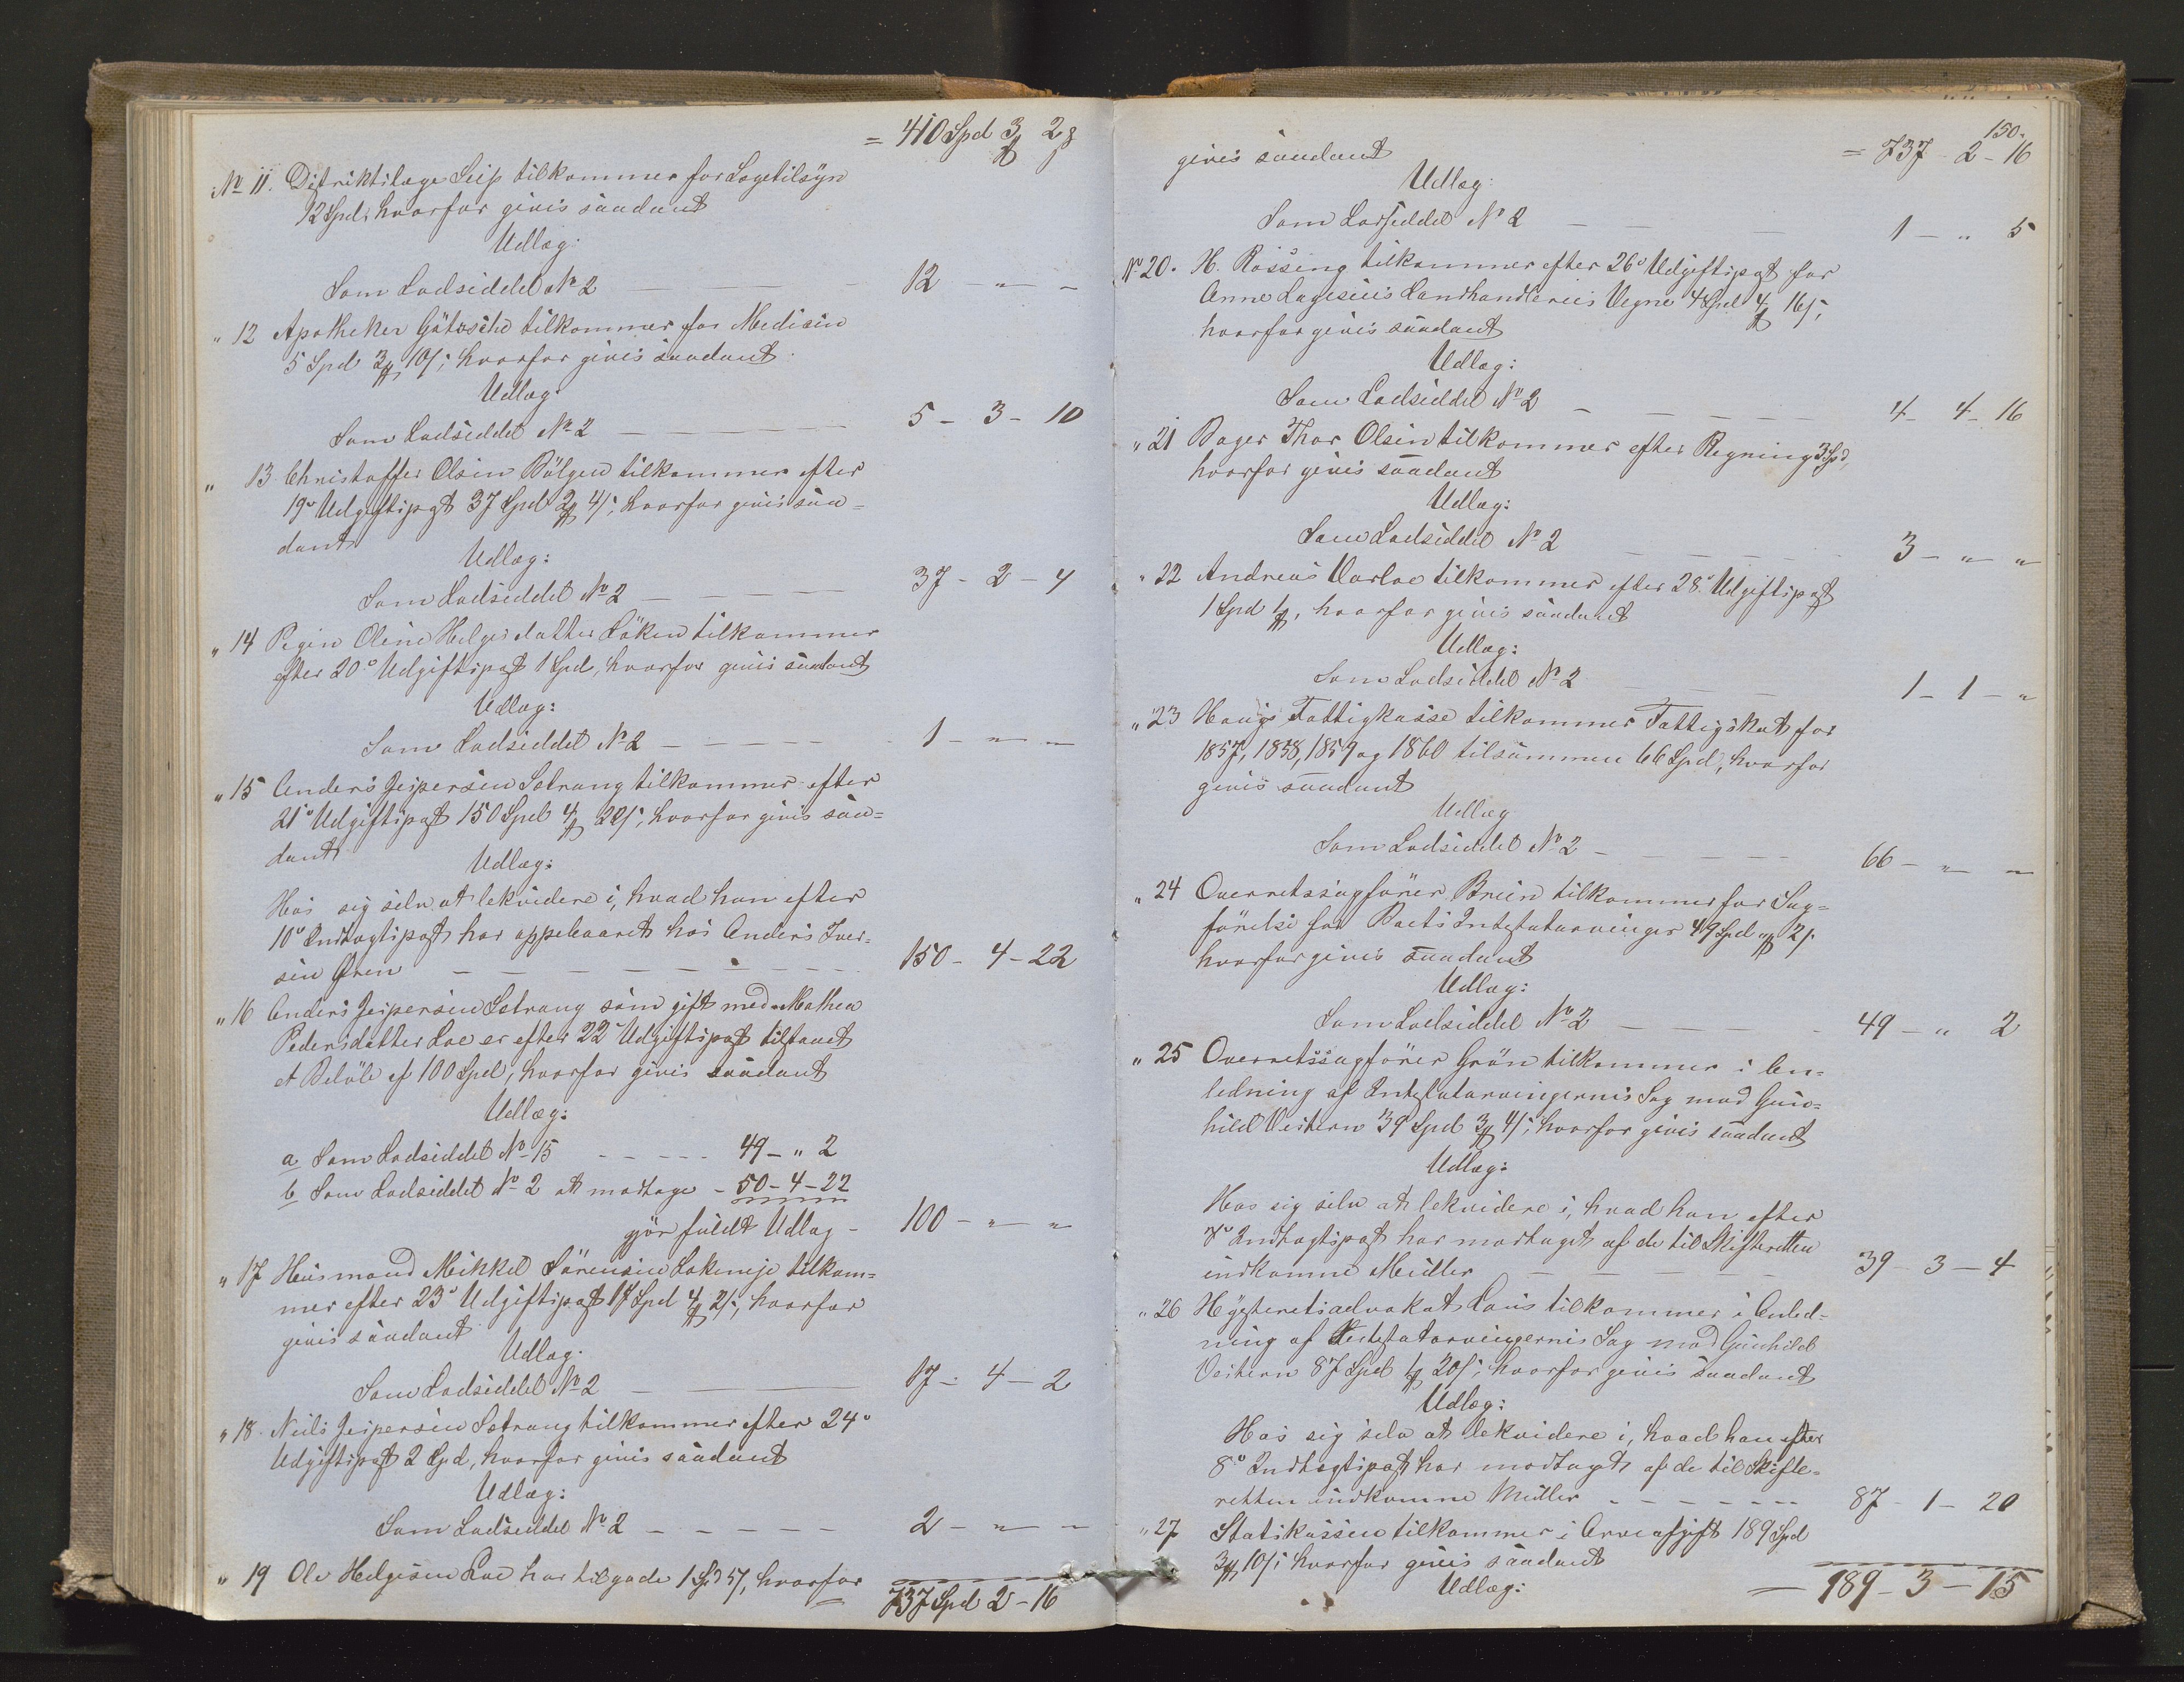 = 410 Spd 3 ₰ 2 ß
No 11. Distriktslæge Seip tilkommer for Lægetilsyn
12 Spd; hvorfor gives saadant
Udlæg:
Som Lodseddel No 2 — — — 12 - " -
" 12 Apotheker Götzsche tilkommer for Medicin
5 Spd 3 ₰ 10 ß; hvorfor gives saadant
Udlæg
Som Lodseddel No 2 — — — 5 - 3 - 10
" 13 Christoffer Olsen Bölgen tilkommer efter
19o Udgiftspost 37 Spd 2 ₰ 4 ß; hvorfor gives saa-
dant
Udlæg:
Som Lodseddel No 2 — — — 37 - 2 - 4
" 14 Pigen Oline Helgesdatter Löken tilkommer
efter 20o Udgiftspost 1 Spd, hvorfor gives saadant
Udlæg:
Som Lodseddel No 2 — — — 1 - " -
" 15 Anders Jespersen Sætrang tilkommer efter
21o Udgiftspost 150 Spd 4 ₰ 22 ß; hvorfor gives saa-
dant
Udlæg:
Hos sig selv at lekvidere i, hvad han efter
10o Indtægtspost har oppebaaret hos Anders Iver-
sen Øren — — — 150 - 4 - 22
" 16 Anders Jespersen Sætrang som gift med Mathea
Pedersdatter Loe er efter 22o Udgiftspost tilstaaet
et Belöb af 100 Spd, hvorfor gives saadant
Udlæg:
a Som Lodseddel No 15 - - - - - 49 - " 2
b Som Lodseddel No 2 at modtage - 50 - 4 - 22
gjör fuldt Udlæg - 100 - " - "
" 17 Husmand Mikkel Sörensen Lokeneje tilkom-
mer efter 23o Udgiftspost 17 Spd 4 ₰ 2 ß; hvorfor
gives saadant
Udlæg.
Som Lodseddel No 2 — — — 17 - 4 - 2
" 18. Neils Jespersen Sætrang tilkommer efter 24o
Udgiftspost 2 Spd, hvorfor gives saadant
Udlæg:
Som Lodseddel No 2 — — — 2 - " -
" 19 Ole Helgesen Loe har tilgode 1 Spd 5 ß, hvorfor
737 Spd 2 - 16
150.
gives saadant = 737 - 2 - 16
Udlæg:
Som Lodseddel No 2 — — — 1 - " 5
No 20. H. Rössing tilkommer efter 26o Udgiftspost for
Anne Lagesens Landhandleries Vegne 4 Spd 4 ₰ 16 ß;
hvorfor gives saadant
Udlæg:
Som Lodseddel No 2 — — — 4 - 4 - 16
" 21 Bager Thor Olsen tilkommer efter Regning 3 Spd,
hvorfor gives saadant
Udlæg:
Som Lodseddel No 2 — — — 3 - " - "
" 22 Andreas Varloe tilkommer efter 28o Udgiftspost
1 Spd 1 ₰, hvorfor gives saadant
Udlæg:
Som Lodseddel No 2 — — — 1 - 1 - "
" 23 Haugs Fattigkasse tilkommer Fattigskat for
1857, 1858, 1859 og 1860 tilsammen 66 Spd, hvorfor
gives saadant
Udlæg
Som Lodseddel No 2 — — — 66 - " -
" 24 Overretssagförer Brein tilkommer for Sag-
förelse for Boets Intestatarvinger 49 Spd " ₰ 2 ß.
hvorfor gives saadant
Udlæg:
Som Lodseddel No 2 — — — 49 - " 2
" 25 Overretssagförer Grön tilkommer i An-
ledning af Intestatarvingernes Sag mod Gun-
hild Vestern 39 Spd 3 ₰ 4 ß; hvorfor gives saadant
Udlæg:
Hos sig selv at lekvidere i, hvad han efter
7o Indtægtspost har modtaget af de til Skifteretten
indkomne Midler — — — 39 - 3 - 4
" 26 Høyesteretsadvokat Lous tilkommer i Anled-
ning af Intestatarvingernes Sag mod Gunhild
Vestern 87 Spd 1 ₰ 20 ß; hvorfor gives saadant
Udlæg:
Hos sig selv at lekvidere i, hvad han efter
8o Indtægtspost har modtaget af de til Skifte-
retten indkomne Midler - - - - 87 - 1 - 20
" 27 Statskassen tilkommer i Arveafgift 189 Spd
3 ₰ 10 ß; hvorfor gives saadant
Udlæg: = 189 - 3 - 15